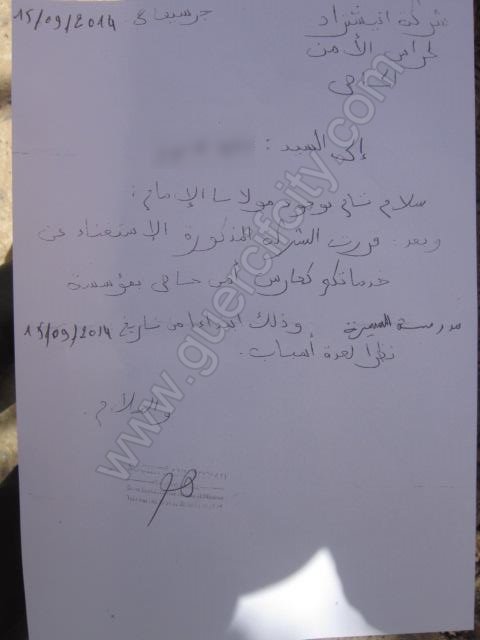 شركة انيشزاد جرسيف في 15/09/2014
لحراس الأمن
الخاص
إلى السيد :
سلام تام بوجود مولانا الإمام ؛
وبعد. قررت الشركة المذكورة الإستغناء عن
خدماتكم كحارس أمن خاص بمؤسسة
مدرسة المسيرة وذلك ابتداءا من تاريخ 15/09/2014
نظرا لعدة أسباب.
والسلام.
www.guercifcity.com